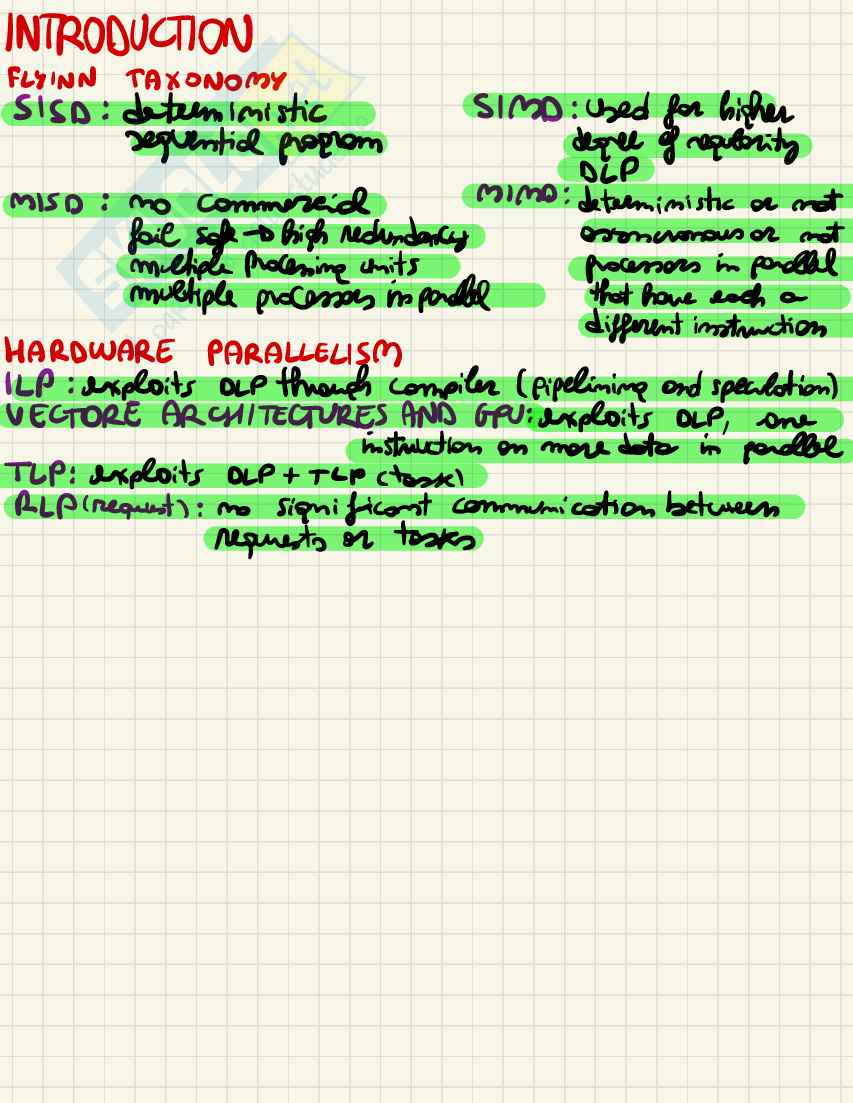 INTRODUCTION
FLYINN TAXONOMY
SISD : deterministic
sequential program
SIMD : used for higher
degree of regularity
DLP
MISD : no commercial
fail safe → high redundancy
multiple processing units
multiple processors in parallel
MIMD : deterministic or not
asincronous or not
processors in parallel
that have each a
different instruction
HARDWARE PARALLELISM
ILP : exploits DLP through compiler (pipelining and speculation)
VECTORE ARCHITECTURES AND GPU: exploits DLP, one
instruction on more data in parallel
TLP: exploits DLP + TLP (task)
RLP (request) : no significant communication between
requests or tasks